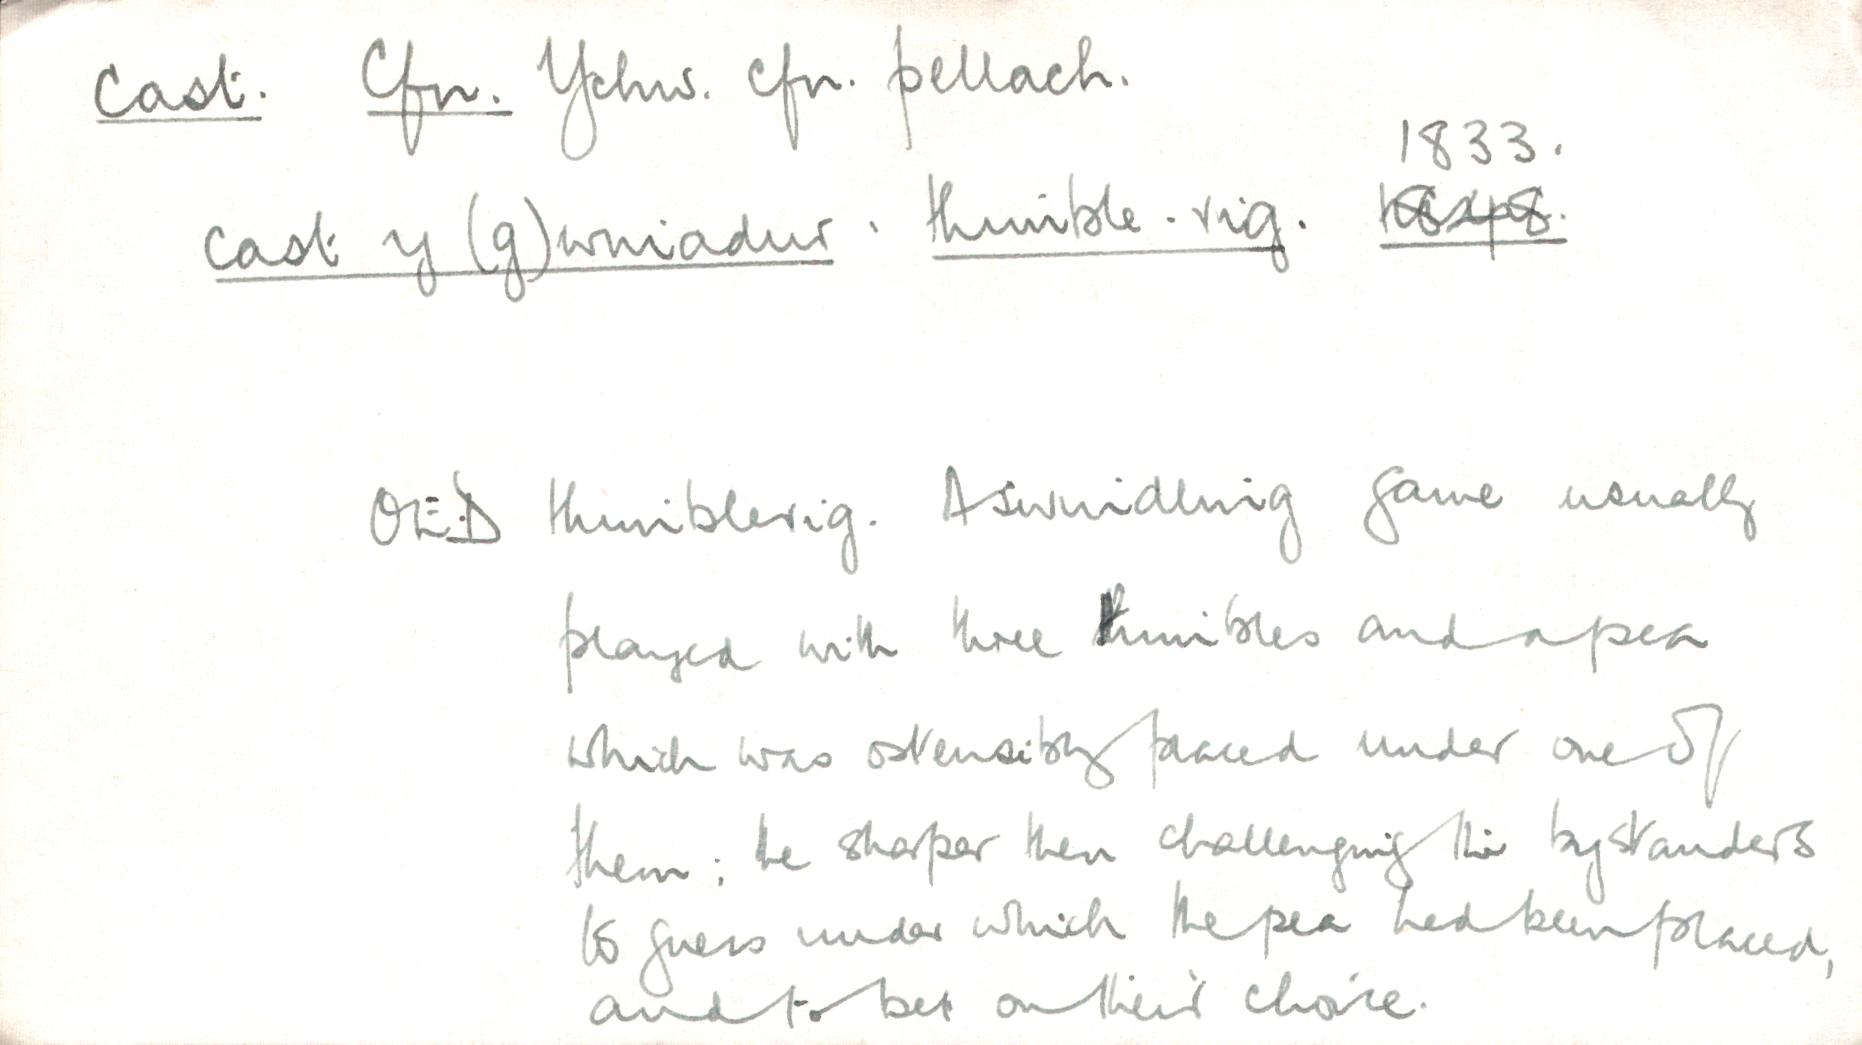 cast. Cfn. Ychw. cfn. pellach.
1833.
cast y (g)wniadur. thimble-rig. 1848.
OED thimblerig. A swindling game usually
played with three thimbles and a pea
which was ostensibly placed under one of
them; the sharper then challenging the bystanders
to guess under which the pea had been placed,
and to bet on their choice.